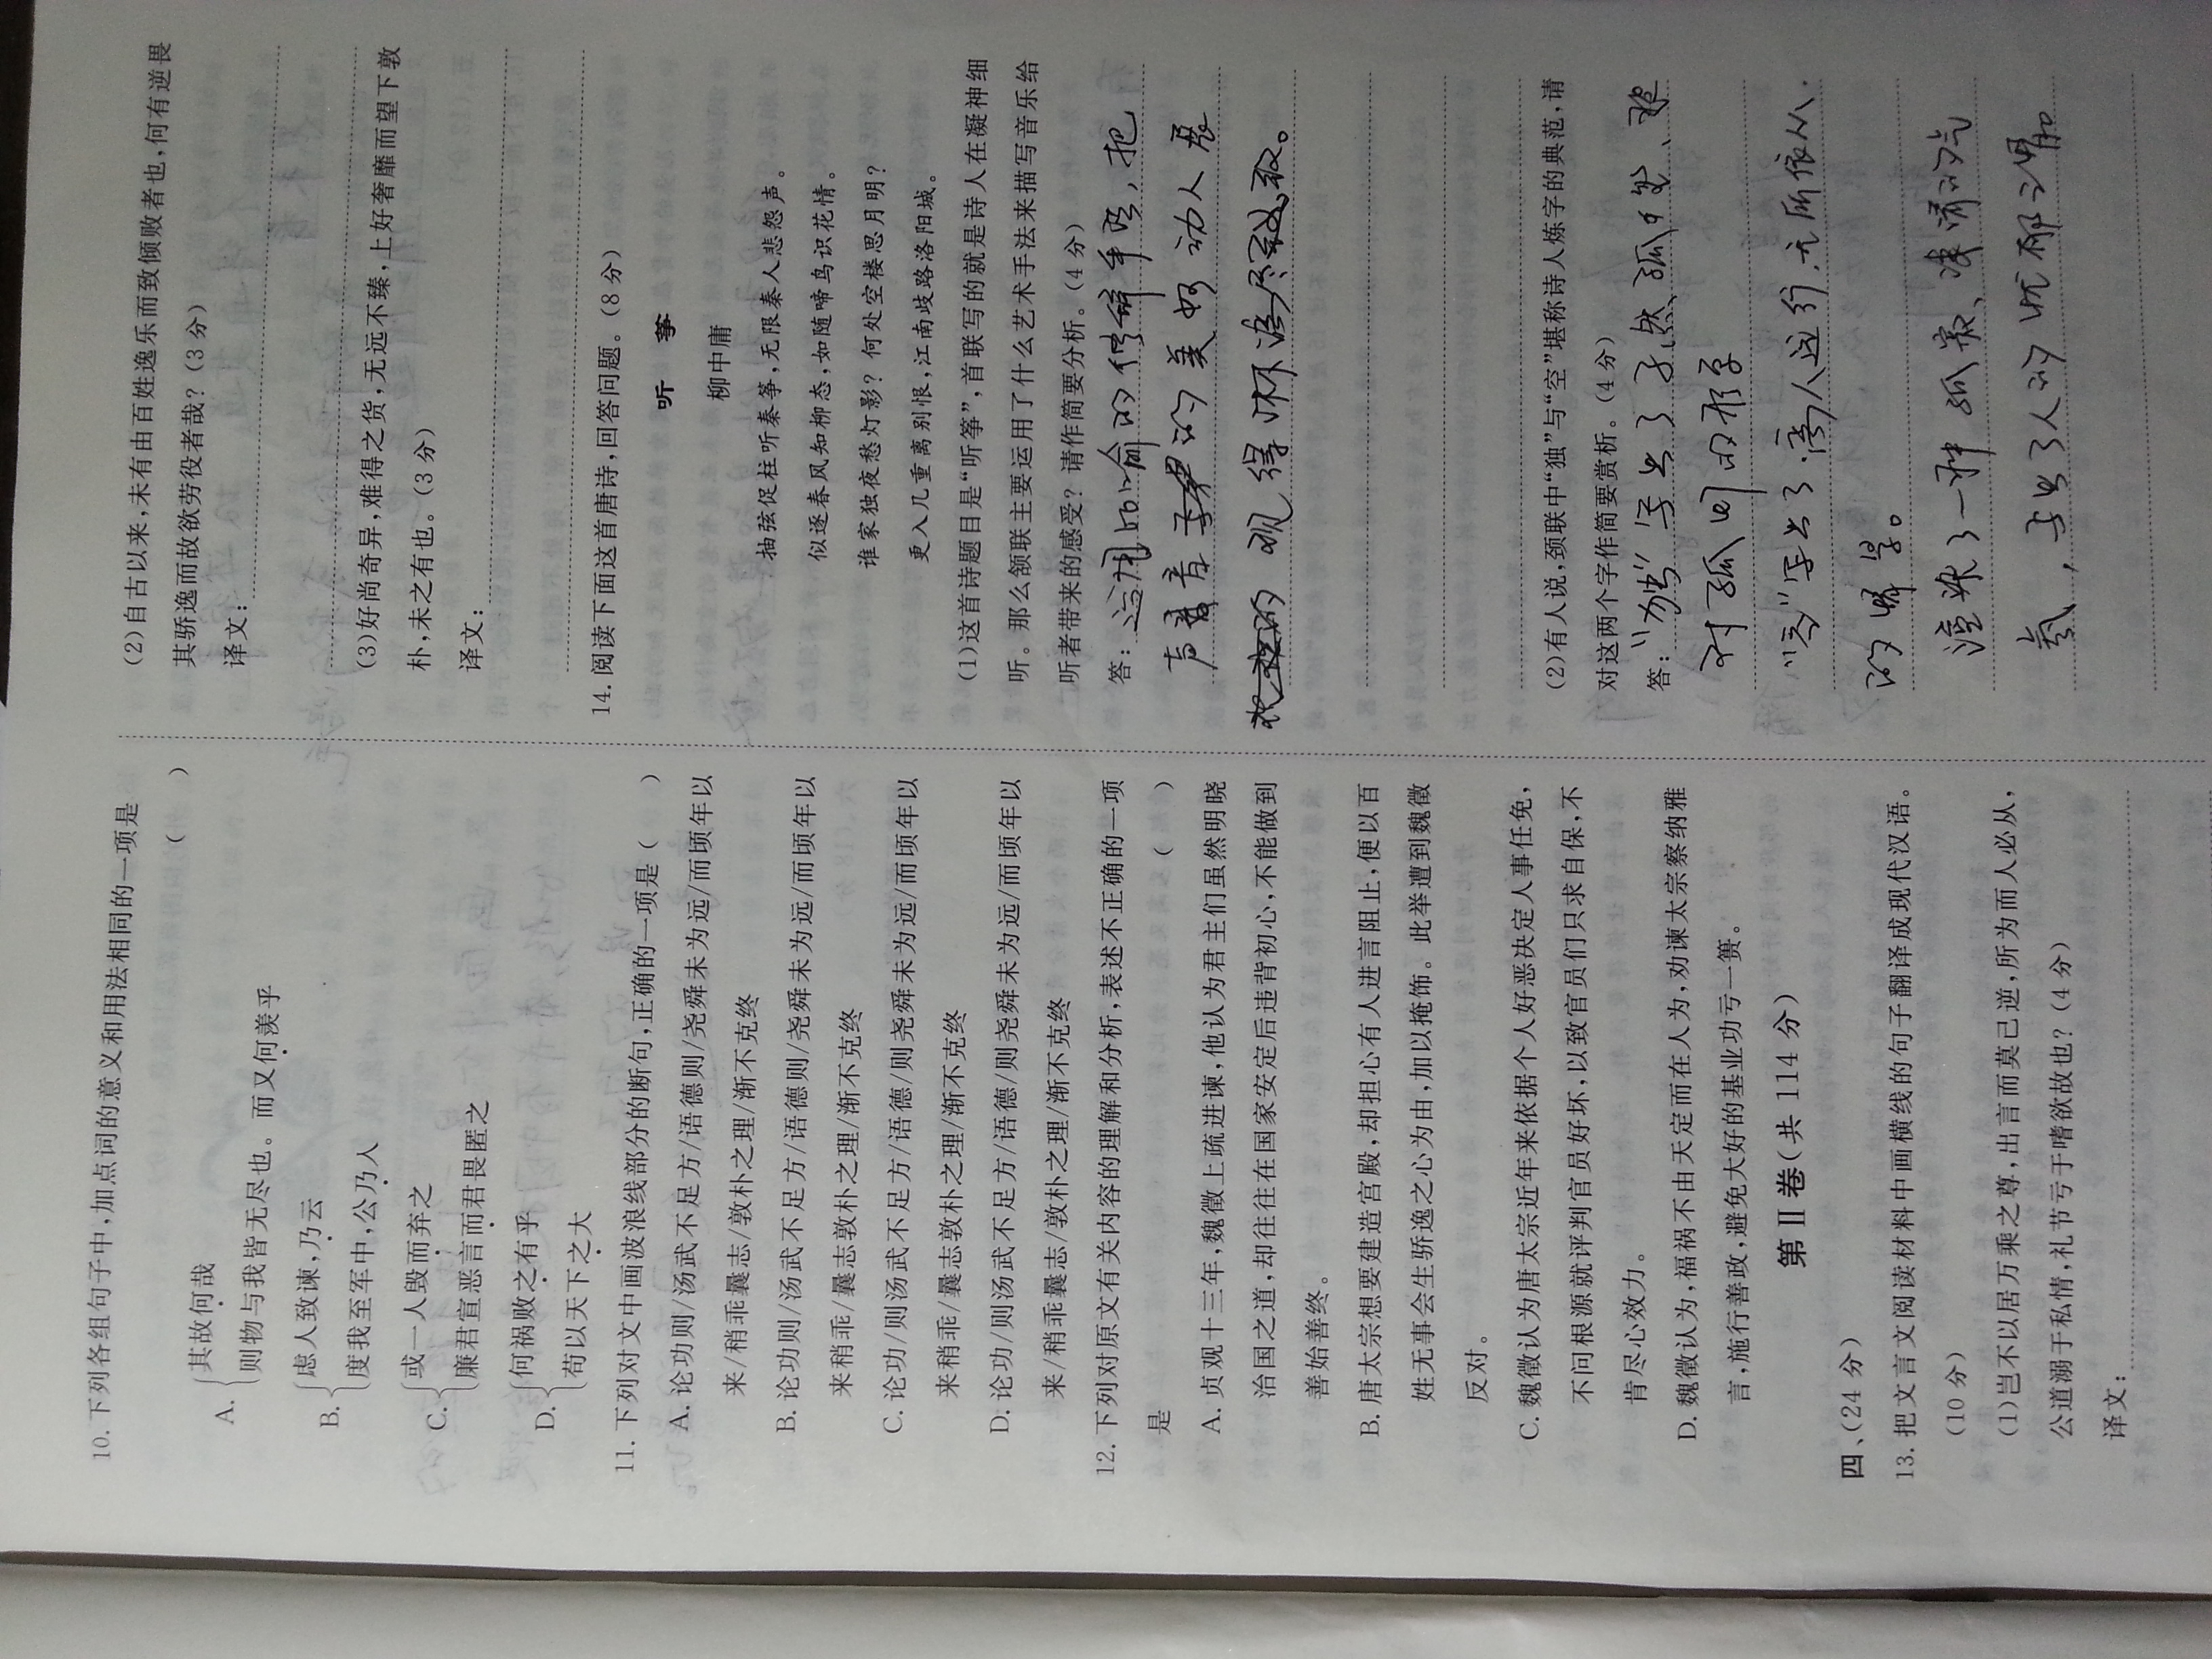 10. 下列各组句子中,加点词的意义和用法相同的一项是
( )
A. 其故何哉
则物与我皆无尽也。而又何羡乎
B. 虑人致谏,乃云
度我至军中,公乃人
C. 或一人毁而弃之
廉君宣恶言而君畏匿之
D. 何祸败之有乎
苟以天下之大
11. 下列对文中画波浪线部分的断句,正确的一项是( )
A. 论功则/汤武不足方/语德则/尧舜未为远/而顷年以
来/稍乖曩志/敦朴之理/渐不克终
B. 论功则/汤武不足方/语德则/尧舜未为远/而顷年以
来稍乖/曩志敦朴之理/渐不克终
C. 论功/则汤武不足方/语德/则尧舜未为远/而顷年以
来稍乖/曩志敦朴之理/渐不克终
D. 论功/则汤武不足方/语德/则尧舜未为远/而顷年以
来/稍乖曩志/敦朴之理/渐不克终
12. 下列对原文有关内容的理解和分析,表述不正确的一项
是 ( )
A. 贞观十三年,魏徵上疏进谏,他认为君主们虽然明晓
治国之道,却往往在国家安定后违背初心,不能做到
善始善终。
B. 唐太宗想要建造宫殿,却担心有人进言阻止,便以百
姓无事会生骄逸之心为由,加以掩饰。此举遭到魏徵
反对。
C. 魏徵认为唐太宗近年来依据个人好恶决定人事任免,
不问根源就评判官员好坏,以致官员们只求自保,不
肯尽心效力。
D. 魏徵认为,福祸不由天定而在人为,劝谏太宗察纳雅
言,施行善政,避免大好的基业功亏一篑。
第Ⅱ卷(共 114 分)
四、(24 分)
13. 把文言文阅读材料中画横线的句子翻译成现代汉语。
(10 分)
(1)岂不以居万乘之尊,出言而莫己逆,所为而人必从,
公道溺于私情,礼节亏于嗜欲故也?(4 分)
译文:
(2)自古以来,未有由百姓逸乐而致倾败者也,何有逆畏
其骄逸而故欲劳役者哉?(3 分)
译文:
(3)好尚奇异,难得之货,无远不臻,上好奢靡而望下敦
朴,未之有也。(3 分)
译文:
14. 阅读下面这首唐诗,回答问题。(8 分)
听 筝
柳中庸
抽弦促柱听秦筝,无限秦人悲怨声。
似逐春风知柳态,如随啼鸟识花情。
谁家独夜愁灯影?何处空楼思月明?
更入几重离别恨,江南歧路洛阳城。
(1)这首诗题目是“听筝”,首联写的就是诗人在凝神细
听。那么颔联主要运用了什么艺术手法来描写音乐给
听者带来的感受?请作简要分析。(4 分)
答: 运用比喻的修辞手法,把
声音的美好动人展
现得淋漓尽致。
(2)有人说,颈联中“独”与“空”堪称诗人炼字的典范,请
对这两个字作简要赏析。(4 分)
答: “独”写出了孑然孤身、
对孤 的形单
“空”写出了离人远行,无所依从
的情景。
渲染了一种孤寂、凄清的气
氛,写出了人的忧郁之情。